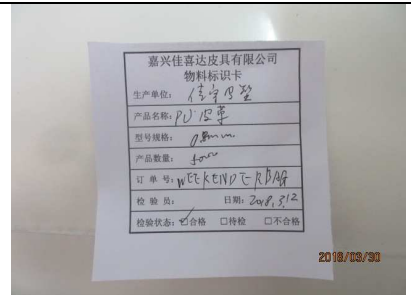 嘉兴佳喜达皮具有限公司
物料标识卡
生产单位：佳宝
产品名称：PU皮革
型号规格：0.8mm
产品数量：
订 单 号：WEEKENDER BAG
检 验 员： 日期：2018.3.12
检验状态：☑合格 □待检 □不合格
2018/03/30